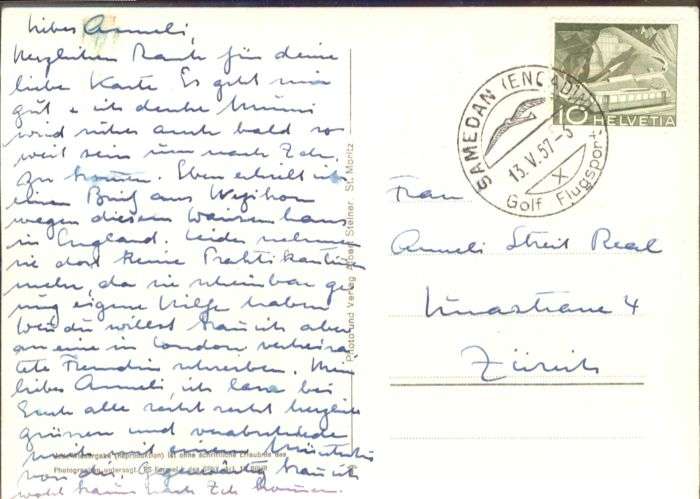 Liebes Anneli,
Herzlichen Dank für deine
liebe Karte. Es geht mir
gut + ich denke Mimi
wird sicher auch bald so
weit sein um nach Zch.
zu kommen. Eben erhielt ich
einen Brief aus
wegen diesem Waisenhaus
in England. Leider nehmen
sie dort keine Praktikantinnen
mehr, da sie scheinbar ge
nug eigene Hilfe haben
Wenn du willst kann ich aber
an eine in London verheira
tete Freundin schreiben. Mein
liebes Anneli, ich lasse bei
Euch alle recht recht herzlich
grüssen und verabschiede
mich mit einem
von dir. Gegenwärtig kann ich
wohl kaum nach Zch kommen.
(Reproduktion) ist ohne schriftliche Erlaubnis des
Photographen untersagt.
Photo und Verlag Albert Steiner, St. Moritz
10 HELVETIA
SAMEDAN (ENGADIN)
13.V.57-5
Golf Flugsport
Frau
Anneli Streit Real
4
Zürich